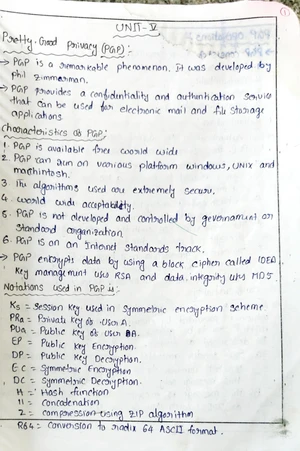 UNIT-V
Pretty-Good Privacy (PGP):-
→ PGP is a remarkable phenomenon. It was developed by
Phil Zimmerman.
→ PGP provides a confidentiality and authentication service
that can be used for electronic mail and file storage
applications.
Characteristics of PGP:-
1. PGP is available free world wide
2. PGP can run on various platform windows, UNIX and
macthintosh.
3. The algorithms used are extremely secure.
4. world wide acceptability.
5. PGP is not developed and controlled by government or
standard organization
6. PGP is on an Internet standards track.
→ PGP encrypts data by using a block cipher called IDEA
Key management uses RSA and data integrity uses MD5.
Notations used in PGP is:-
Ks = Session key used in symmetric encryption scheme.
PRa = Private key of user A.
PUa = Public key of user A.
EP = Public key Encryption.
DP = Public key Decryption.
EC = Symmetric Encryption
DC = Symmetric Decryption.
H = Hash function
|| = Concatenation
Z = compression using ZIP algorithm
R64 = conversion to radix 64 ASCII format.